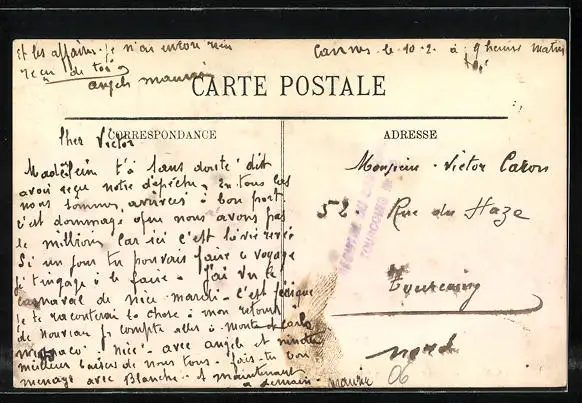 Et les affaires. je n'ai encore rien
reçu de toi
angèle maurice
Cannes le 10-2. à 9 heures matin
CARTE POSTALE
CORRESPONDANCE
ADRESSE
Cher Victor
t'a sans doute dit
avoir reçu notre dépêche, en tous cas
nous sommes arrivées à bon port
c'est dommage que nous avons pas
le million, car ici c'est la vie rêvée
Si un jour tu pouvais faire ce voyage
je t'engage à le faire - j'ai vu le
carnaval de nice mardi - c'est féerique
je te raconterai la chose à mon retour
de nouveau je compte aller à monte-carlo
monaco nice - avec angèle et
meilleurs baisers de nous tous - fais-tu bon
menage avec Blanche - et maintenant
à demain - maurice
Monsieur Victor Caron
52 Rue du Haze
Tourcoing
nord
06